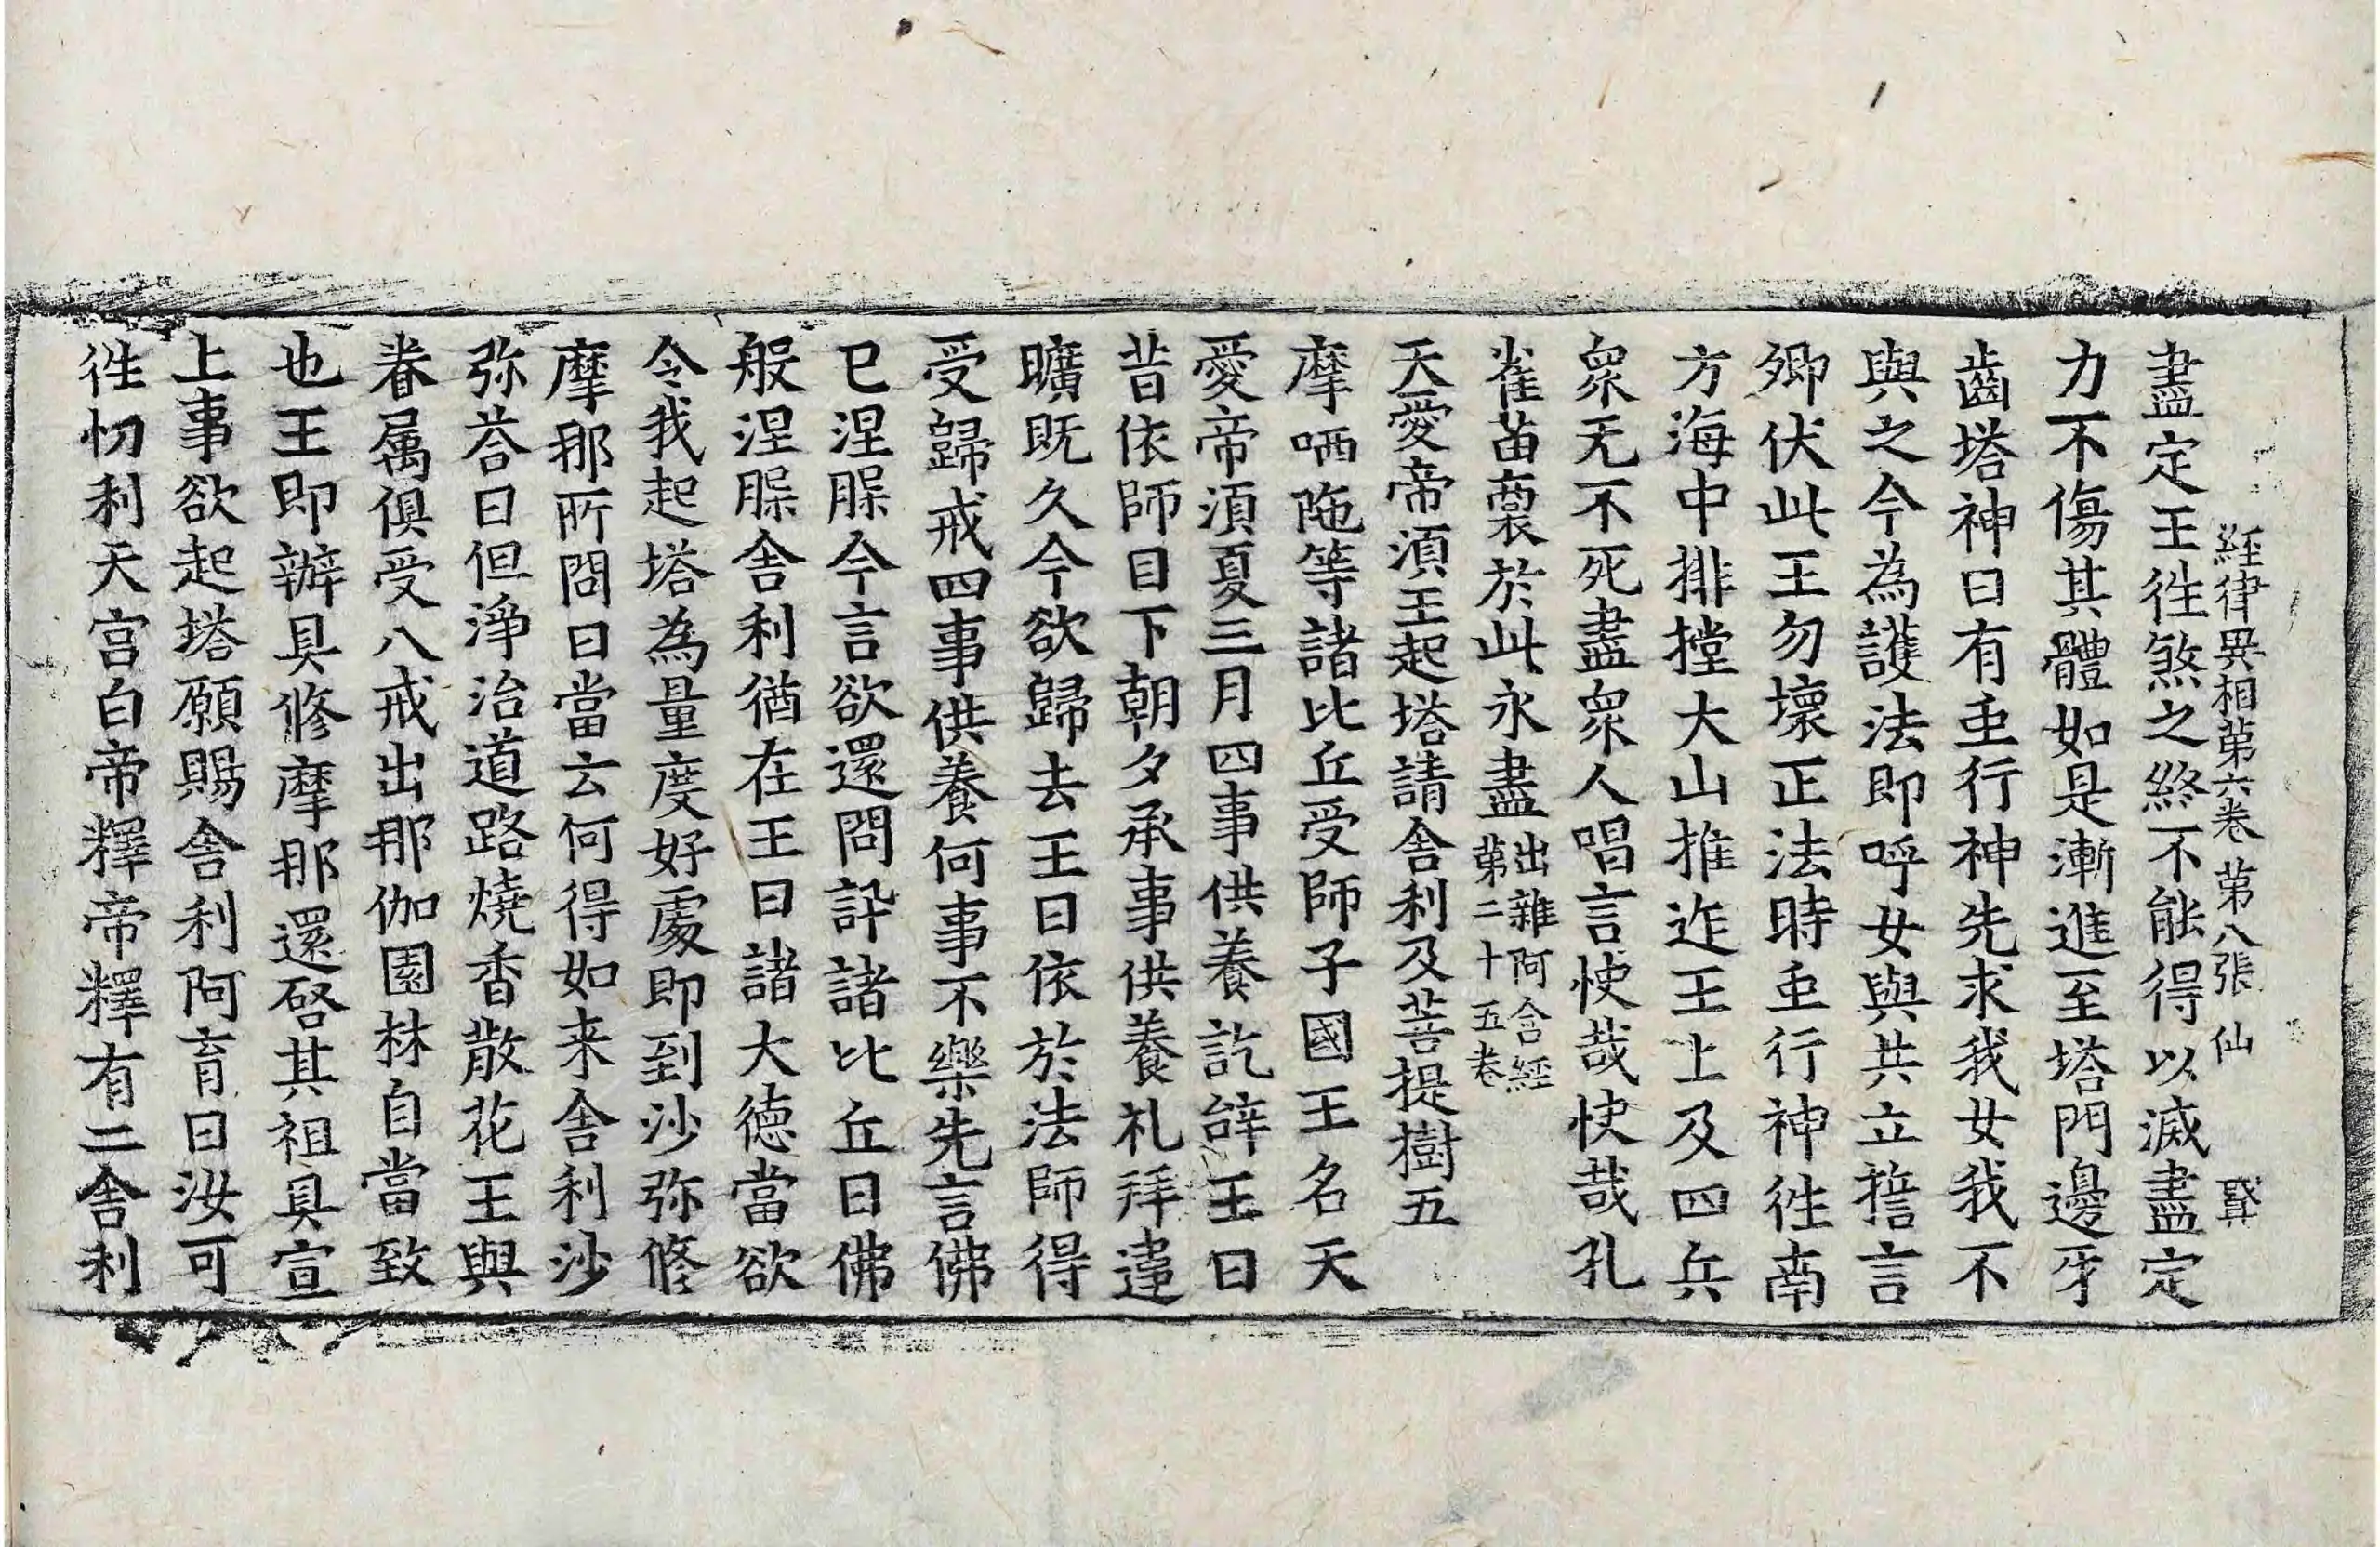 經律異相第六卷 第八張 仙 賢
盡定王徃煞之終不能得以滅盡定
力不傷其體如是漸進至塔門邊牙
齒塔神曰有䖝行神先求我女我不
與之今為護法即呼女與共立誓言
卿伏此王勿壞正法時䖝行神徃南
方海中排摚大山推迮王上及四兵
衆无不死盡衆人唱言快哉快哉孔
雀苗裔於此永盡出雜阿含經第二十五卷
天愛帝湏王起塔請舍利及菩提樹五
摩哂陁等諸比丘受師子國王名天
愛帝湏夏三月四事供養訖辝王曰
昔依師目下朝夕承事供養礼拜違
曠既久今欲歸去王曰依於法師得
受歸戒四事供養何事不樂先言佛
已涅槃今言欲還問訊諸比丘曰佛
般涅槃舍利猶在王曰諸大德當欲
令我起塔為量度好處即到沙弥修
摩那所問曰當云何得如来舍利沙
弥荅曰但淨治道路燒香散花王與
眷屬俱受八戒出那伽園林自當致
也王即辦具修摩那還啓其祖具宣
上事欲起塔願賜舍利阿育曰汝可
徃忉利天宫白帝釋帝釋有二舍利